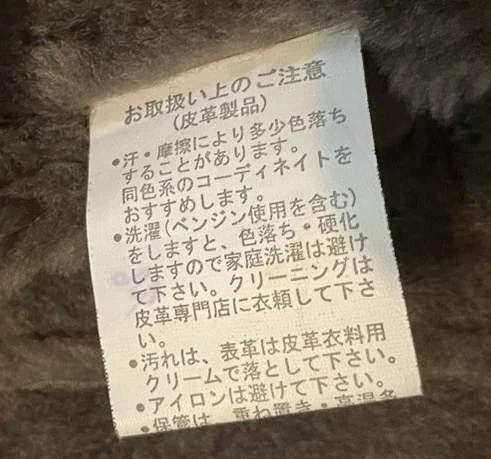 お取扱い上のご注意
(皮革製品)
•汗・摩擦により多少色落ち
することがあります。
同色系のコーディネイトを
おすすめします。
•洗濯(ベンジン使用を含む)
をしますと、色落ち・硬化
しますので家庭洗濯は避け
て下さい。クリーニングは
皮革専門店に衣頼して下さ
い。
•汚れは、表革は皮革衣料用
クリームで落として下さい。
•アイロンは避けて下さい。
•保管は、重ね置き・高温多